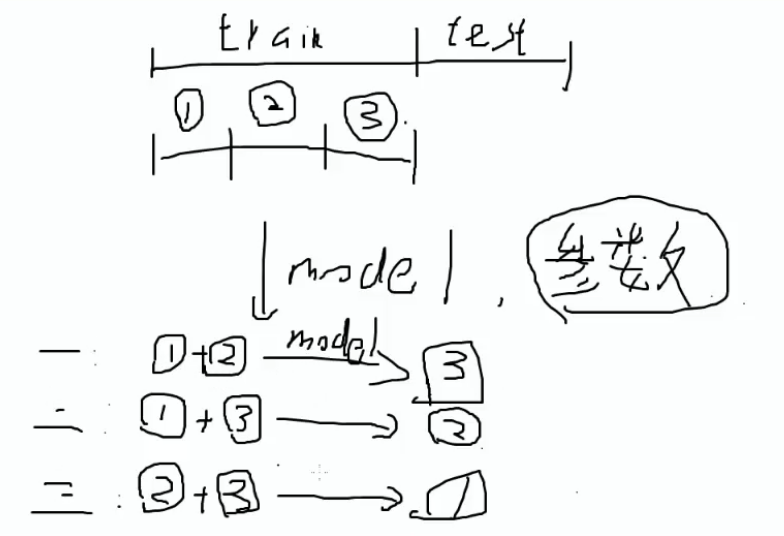 train test
① ② ③
model, 参数
一: ①+② model ③
二: ①+③ ②
三: ②+③ 1